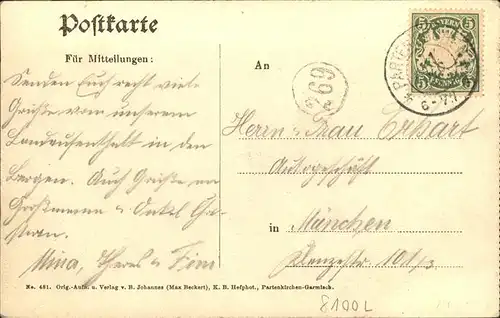 Postkarte
Für Mitteilungen:
An
Senden Euch recht viele
Grüsse von unserem
Landaufenthalt in den
Bergen. Auch Grüsse an
Grossmama & Onkel
Mina, Theres & Fini
Herrn & Frau Erhart
in München
Klenzestr 101/3
BAYERN
5 5
5 5
PARTEN
6-7N
69
No. 481. Orig.-Aufn. u. Verlag v. B. Johannes (Max Beckert), K. B. Hofphot., Partenkirchen-Garmisch.
8100L